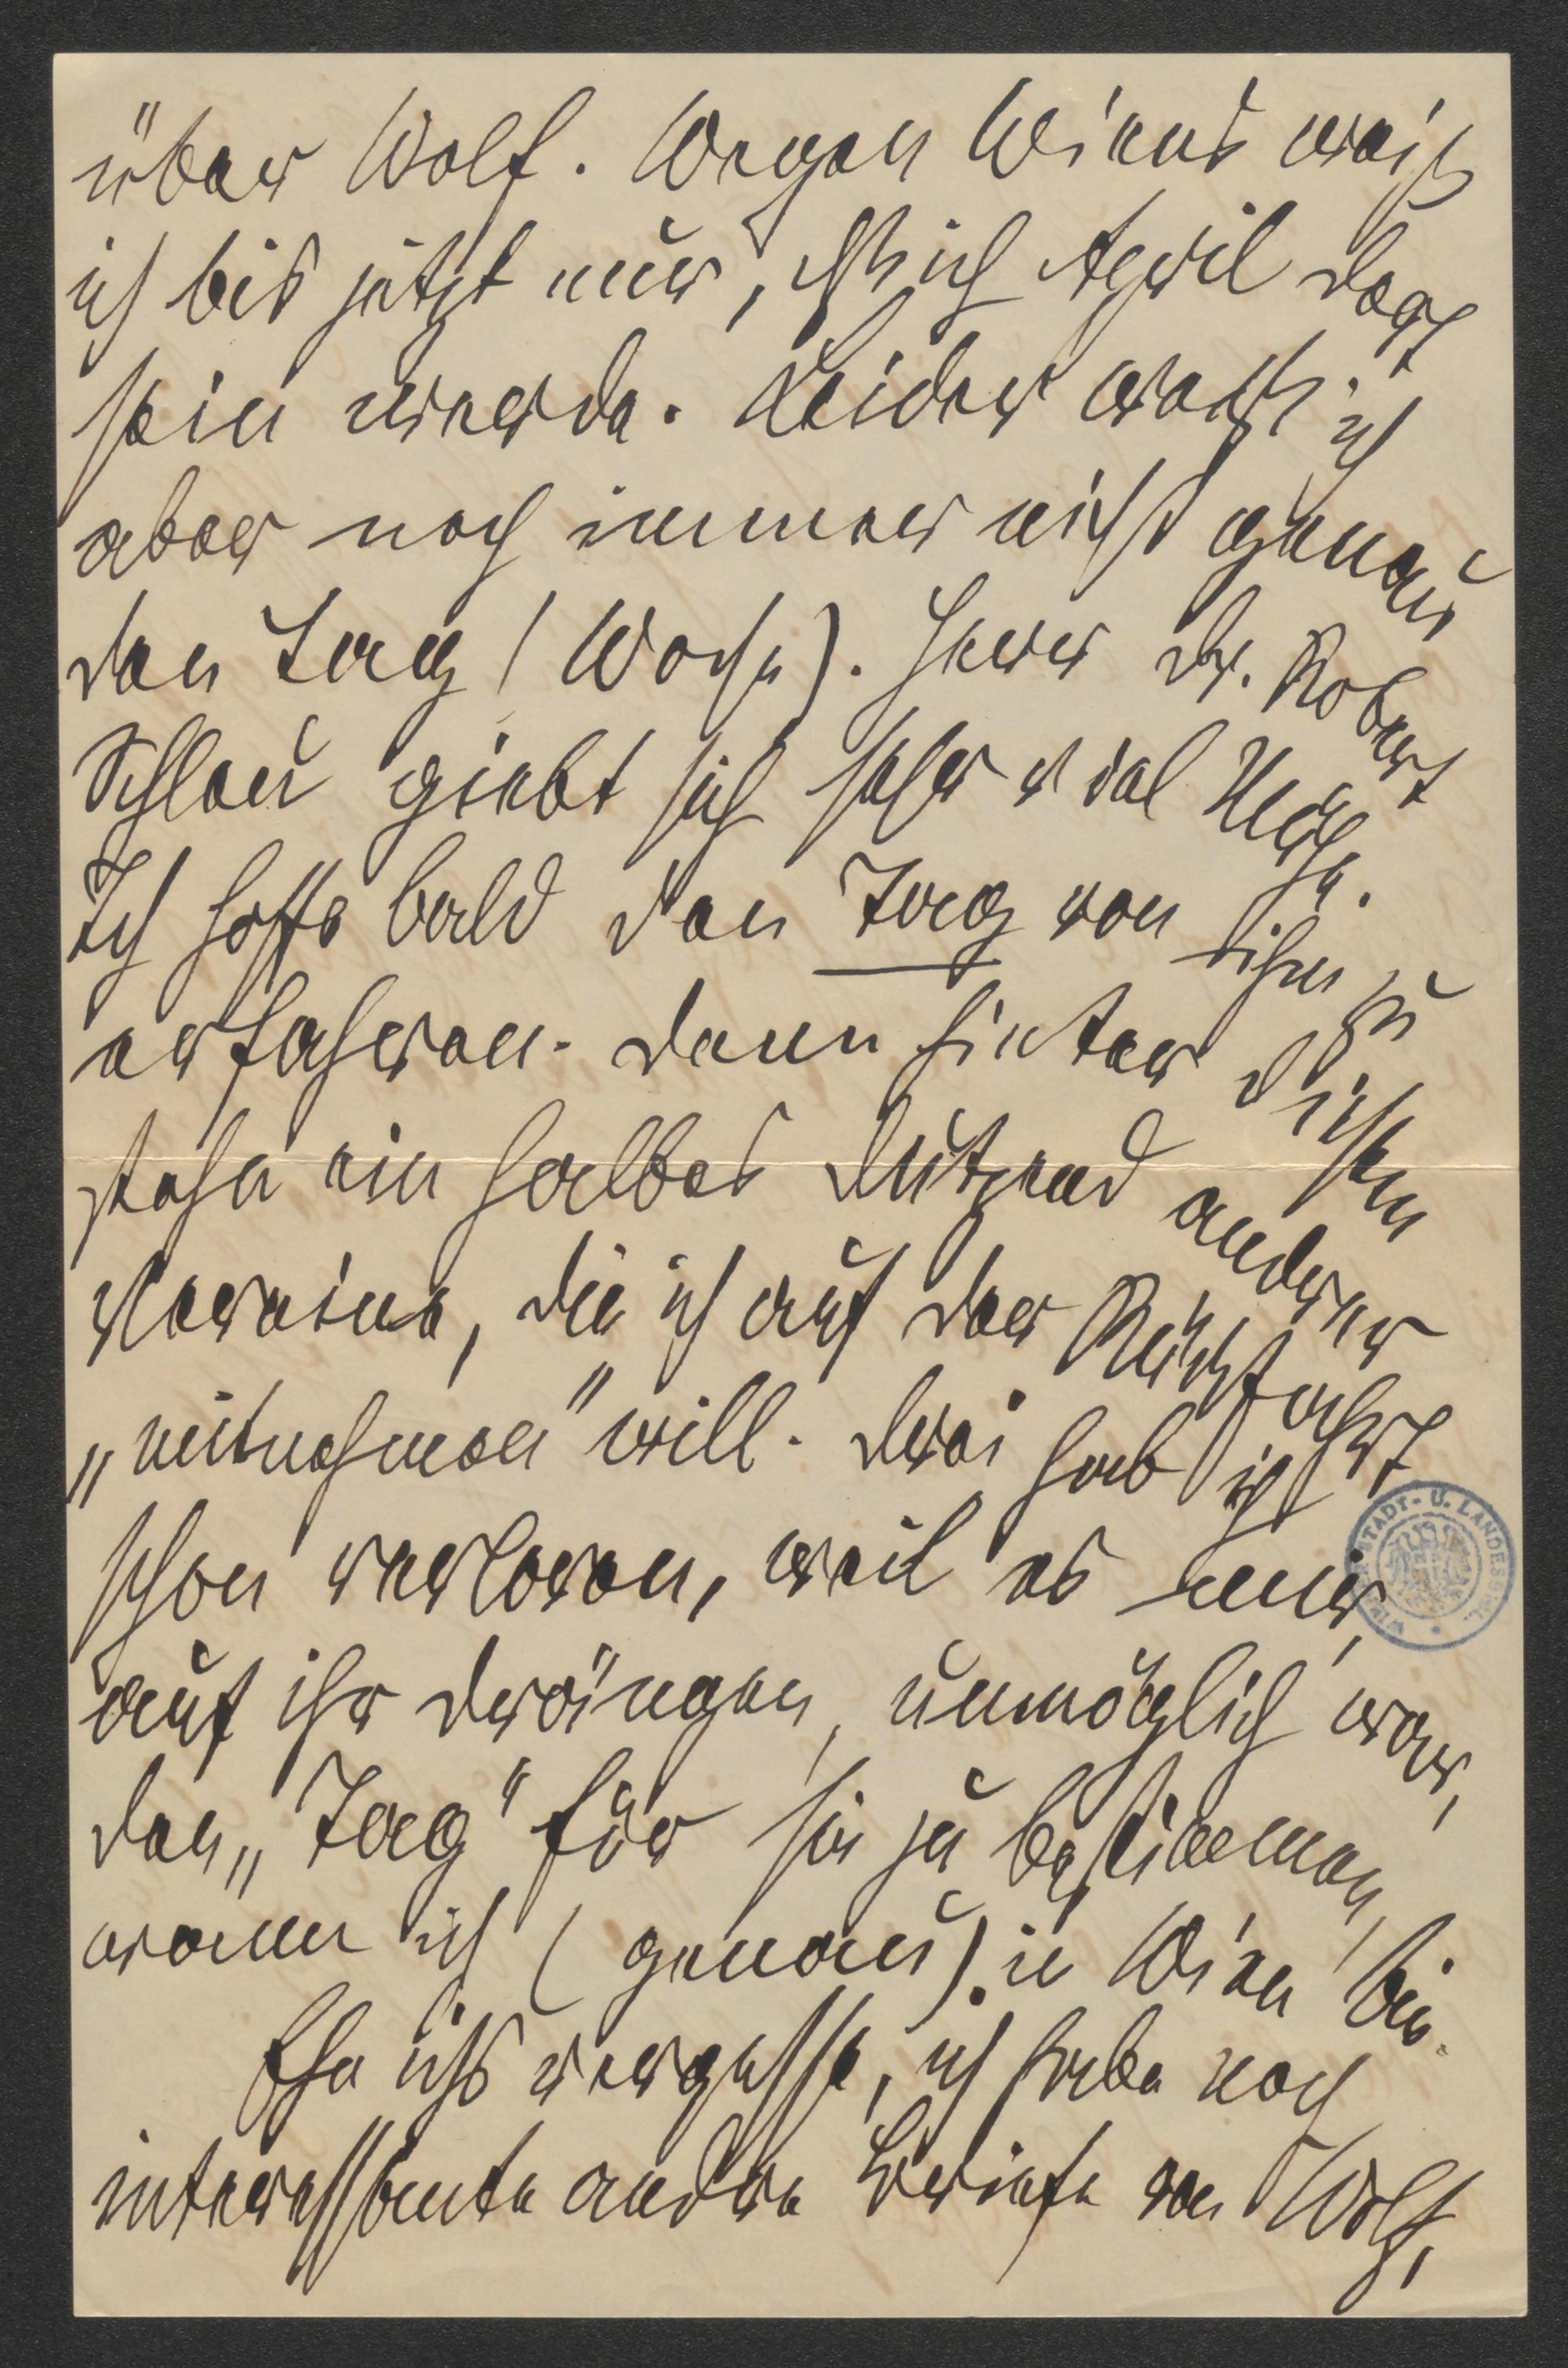 über Wolf. Wegen Wiens weiß
ich bis jetzt nur, daß ich April dort
sein werde. Leider weiß ich
aber noch immer nicht genau
den Tag (Woche). Herr Dr. Robert
Schlau giebt sich sehr viel Mühe.
Ich hoffe bald den Tag von ihm zu
erfahren. Denn hinter diesem
stehn ein halbes Dutzend anderer
Vereine, die ich auf der Rückfahrt
„mitnehmen" will. Drei hab ich
schon verloren, weil es mir,
auf ihr Drängen, unmöglich war,
den „Tag" für sie zu bestimmen,
wann ich (genau) in Wien bin.
Ehe ichs vergesse, ich habe noch
interessante andre Briefe von Wolf,
STADT- U. LANDESBIBL.